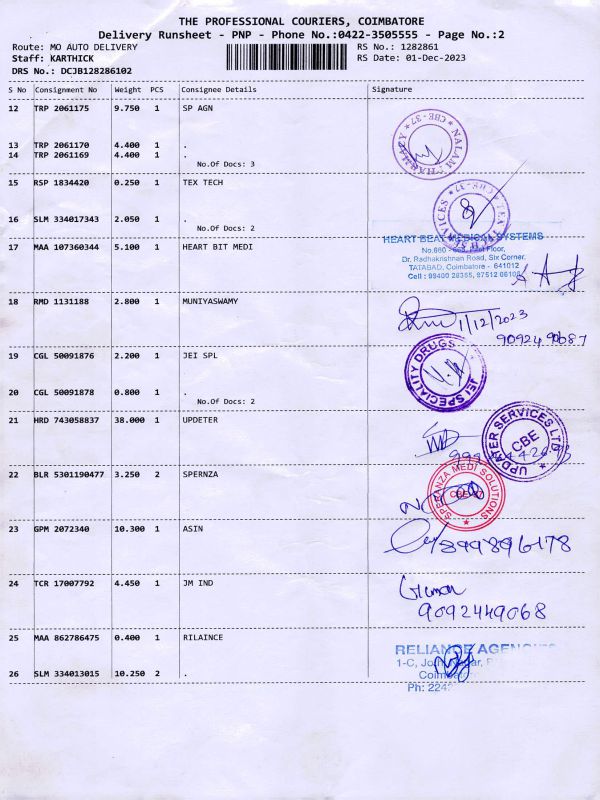 THE PROFESSIONAL COURIERS, COIMBATORE
Delivery Runsheet - PNP - Phone No.:0422-3505555 - Page No.:2
Route: MO AUTO DELIVERY RS No.: 1282861
Staff: KARTHICK RS Date: 01-Dec-2023
DRS No.: DCJB128286102
S No Consignment No Weight PCS Consignee Details Signature
12 TRP 2061175 9.750 1 SP AGN
13 TRP 2061170 4.400 1 .
14 TRP 2061169 4.400 1 .
No.Of Docs: 3
CBE - 37
15 RSP 1834420 0.250 1 TEX TECH
16 SLM 334017343 2.050 1 .
No.Of Docs: 2
17 MAA 107360344 5.100 1 HEART BIT MEDI
HEART BEAT MEDICAL SYSTEMS
Floor,
Dr. Radhakrishnan Road, Six Corner,
TATABAD, Coimbatore - 641012
Cell : 98400 28355,
18 RMD 1131188 2.800 1 MUNIYASWAMY
1/12/2023
90924 90687
19 CGL 50091876 2.200 1 JEI SPL
20 CGL 50091878 0.800 1 .
No.Of Docs: 2
JEI SPECIALITY DRUGS
21 HRD 743058837 38.000 1 UPDETER
UPDATER SERVICES LTD
CBE
22 BLR 5301190477 3.250 2 SPERNZA
SPERANZA MEDI SOLUTIONS
23 GPM 2072340 10.300 1 ASIN
24 TCR 17007792 4.450 1 JM IND
9092449068
25 MAA 862786475 0.400 1 RILAINCE
26 SLM 334013015 10.250 2 .
RELIANCE
1-C,
Ph: